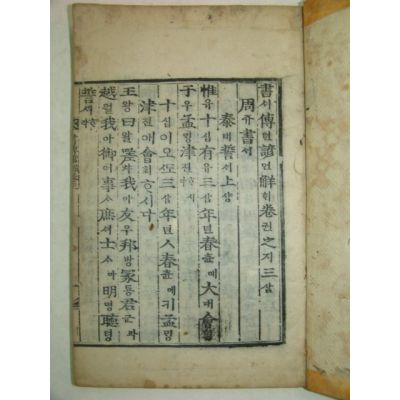 書셔傳뎐諺언解ᄒᆡ卷권之지三삼
周쥬書셔
泰태誓셔上샹
惟유十십有유三삼年년春츈에大대會회
于우孟ᄆᆡᆼ津진
十십이오三삼年년ㅅ春츈에키孟ᄆᆡᆼ
津진애會회ᄒᆞ시다
王왕曰왈嗟차我아友우邦방冢툥君군과
越월我아御어事ᄉᆞ庶셔士ᄉᆞ아明명聽텽
誓셔